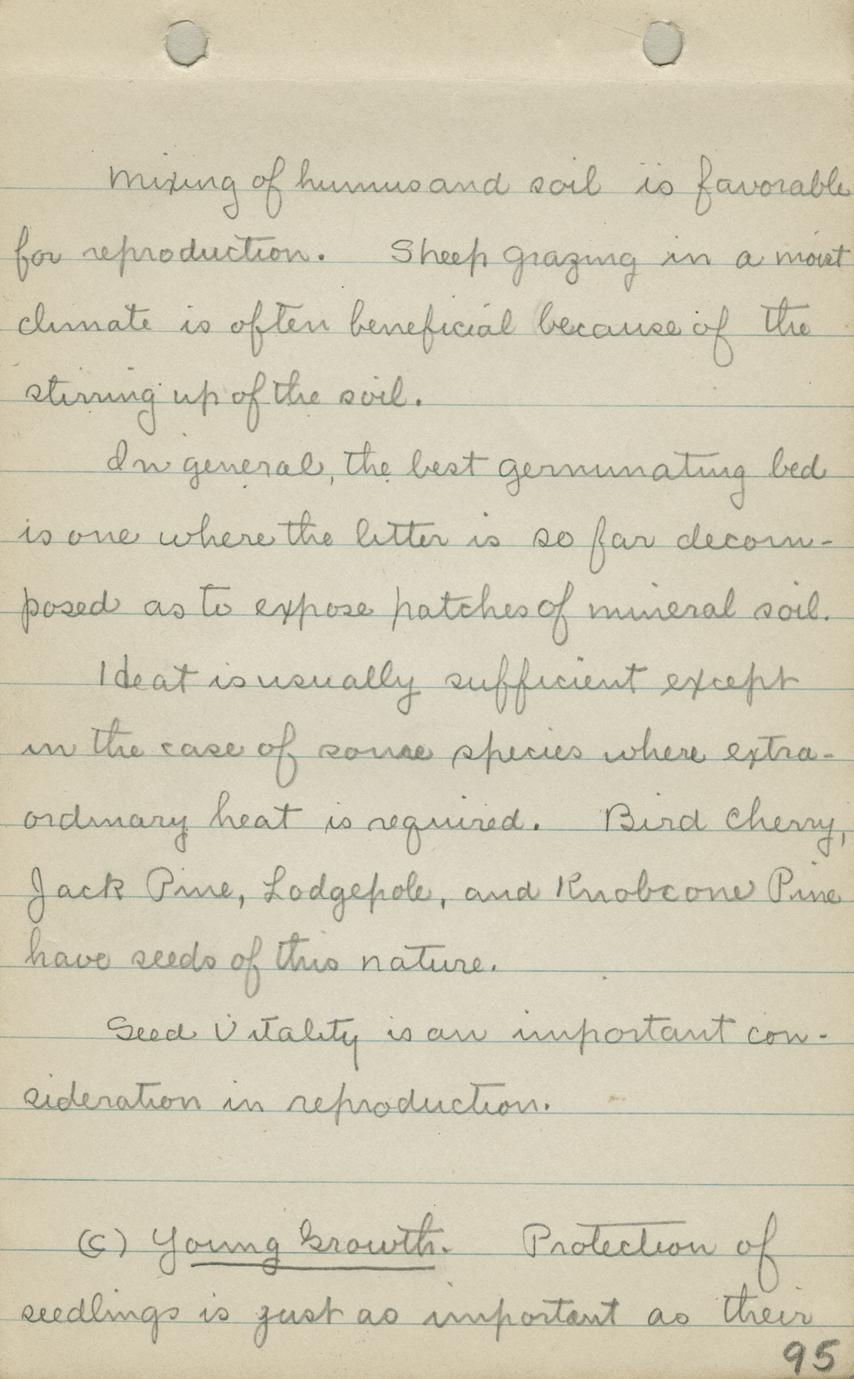 Mixing of humus and soil is favorable
for reproduction. Sheep grazing in a moist
climate is often beneficial because of the
stirring up of the soil.
In general, the best germinating bed
is one where the litter is so far decom-
posed as to expose patches of mineral soil.
Heat is usually sufficient except
in the case of some species where extra-
ordinary heat is required. Bird Cherry,
Jack Pine, Lodgepole, and Knobcone Pine
have seeds of this nature.
Seed Vitality is an important con-
sideration in reproduction.
(c) Young Growth. Protection of
seedlings is just as important as their
95